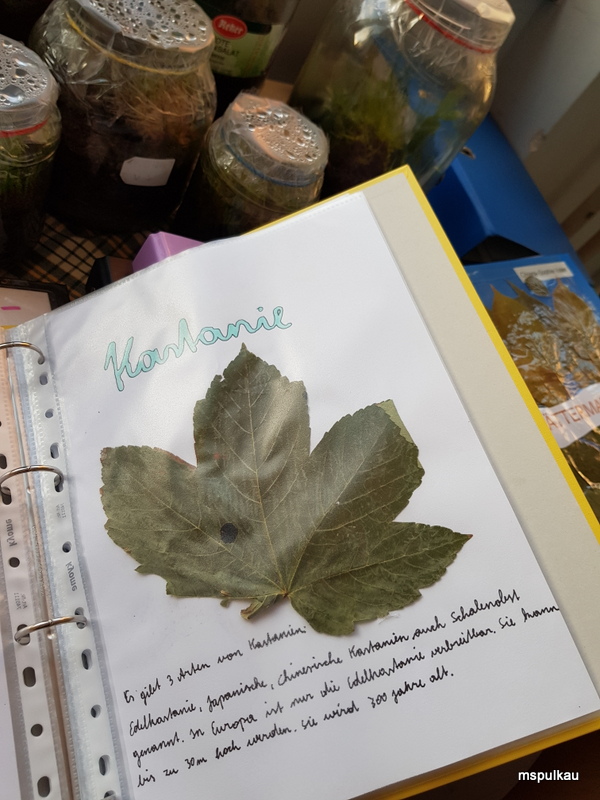 Kastanie
Es gibt 3 Arten von Kastanien:
Edelkastanie, Japanische, Chinesische Kastanien auch Schalenobst
genannt. In Europa ist nur die Edelkastanie verbreitbar. Sie kann
bis zu 30m hoch werden. Sie wird 300 Jahre alt.
mspulkau